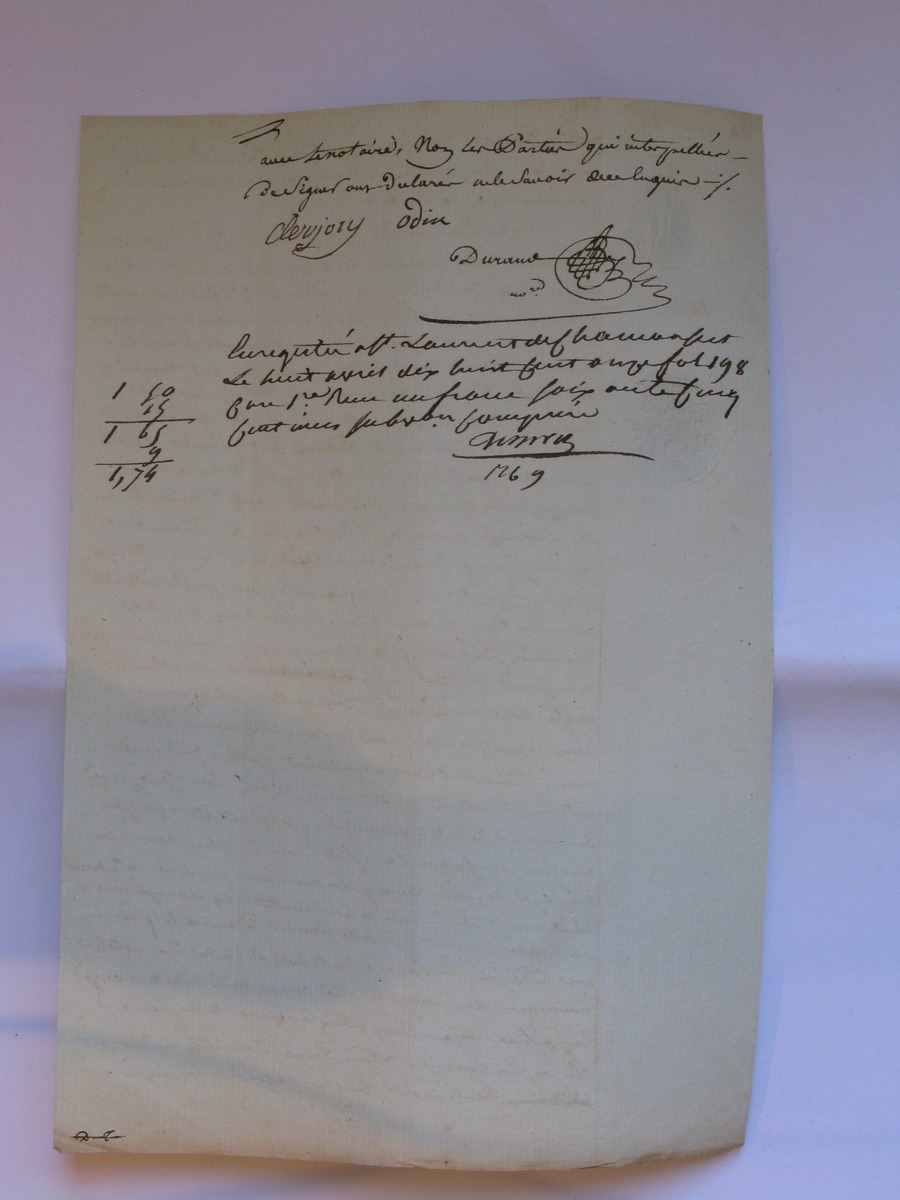 avec le notaire, Non les Parties qui interpellées
De Signer ont Déclarés ne le Savoir de ce Enquis ./.
Clerjory Odin
Durand
no.re
Enregistré a St. Laurent de Chamousset
Le huit avril dix huit cent onze fol 198
Case 1.re Reçu un franc soixante cinq
Centimes subvon Comprise
1 50
15
1 65
9
1,74
1769